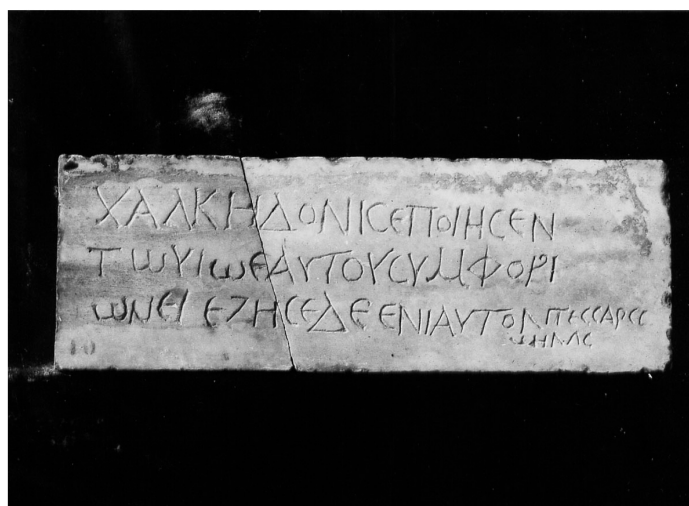 ΧΑΛΚΗΔΟΝΙϹΕΠΟΙΗϹΕΝ
ΤωΥΙωΕΑΥΤΟΥϹΥΜΦΟΡΙ
ωΝΕΙ ΕΖΗϹΕΔΕ ΕΝΙΑΥΤΟΝ ΤΕϹϹΑΡΕϹ
ΜΗΝΑϹ
10